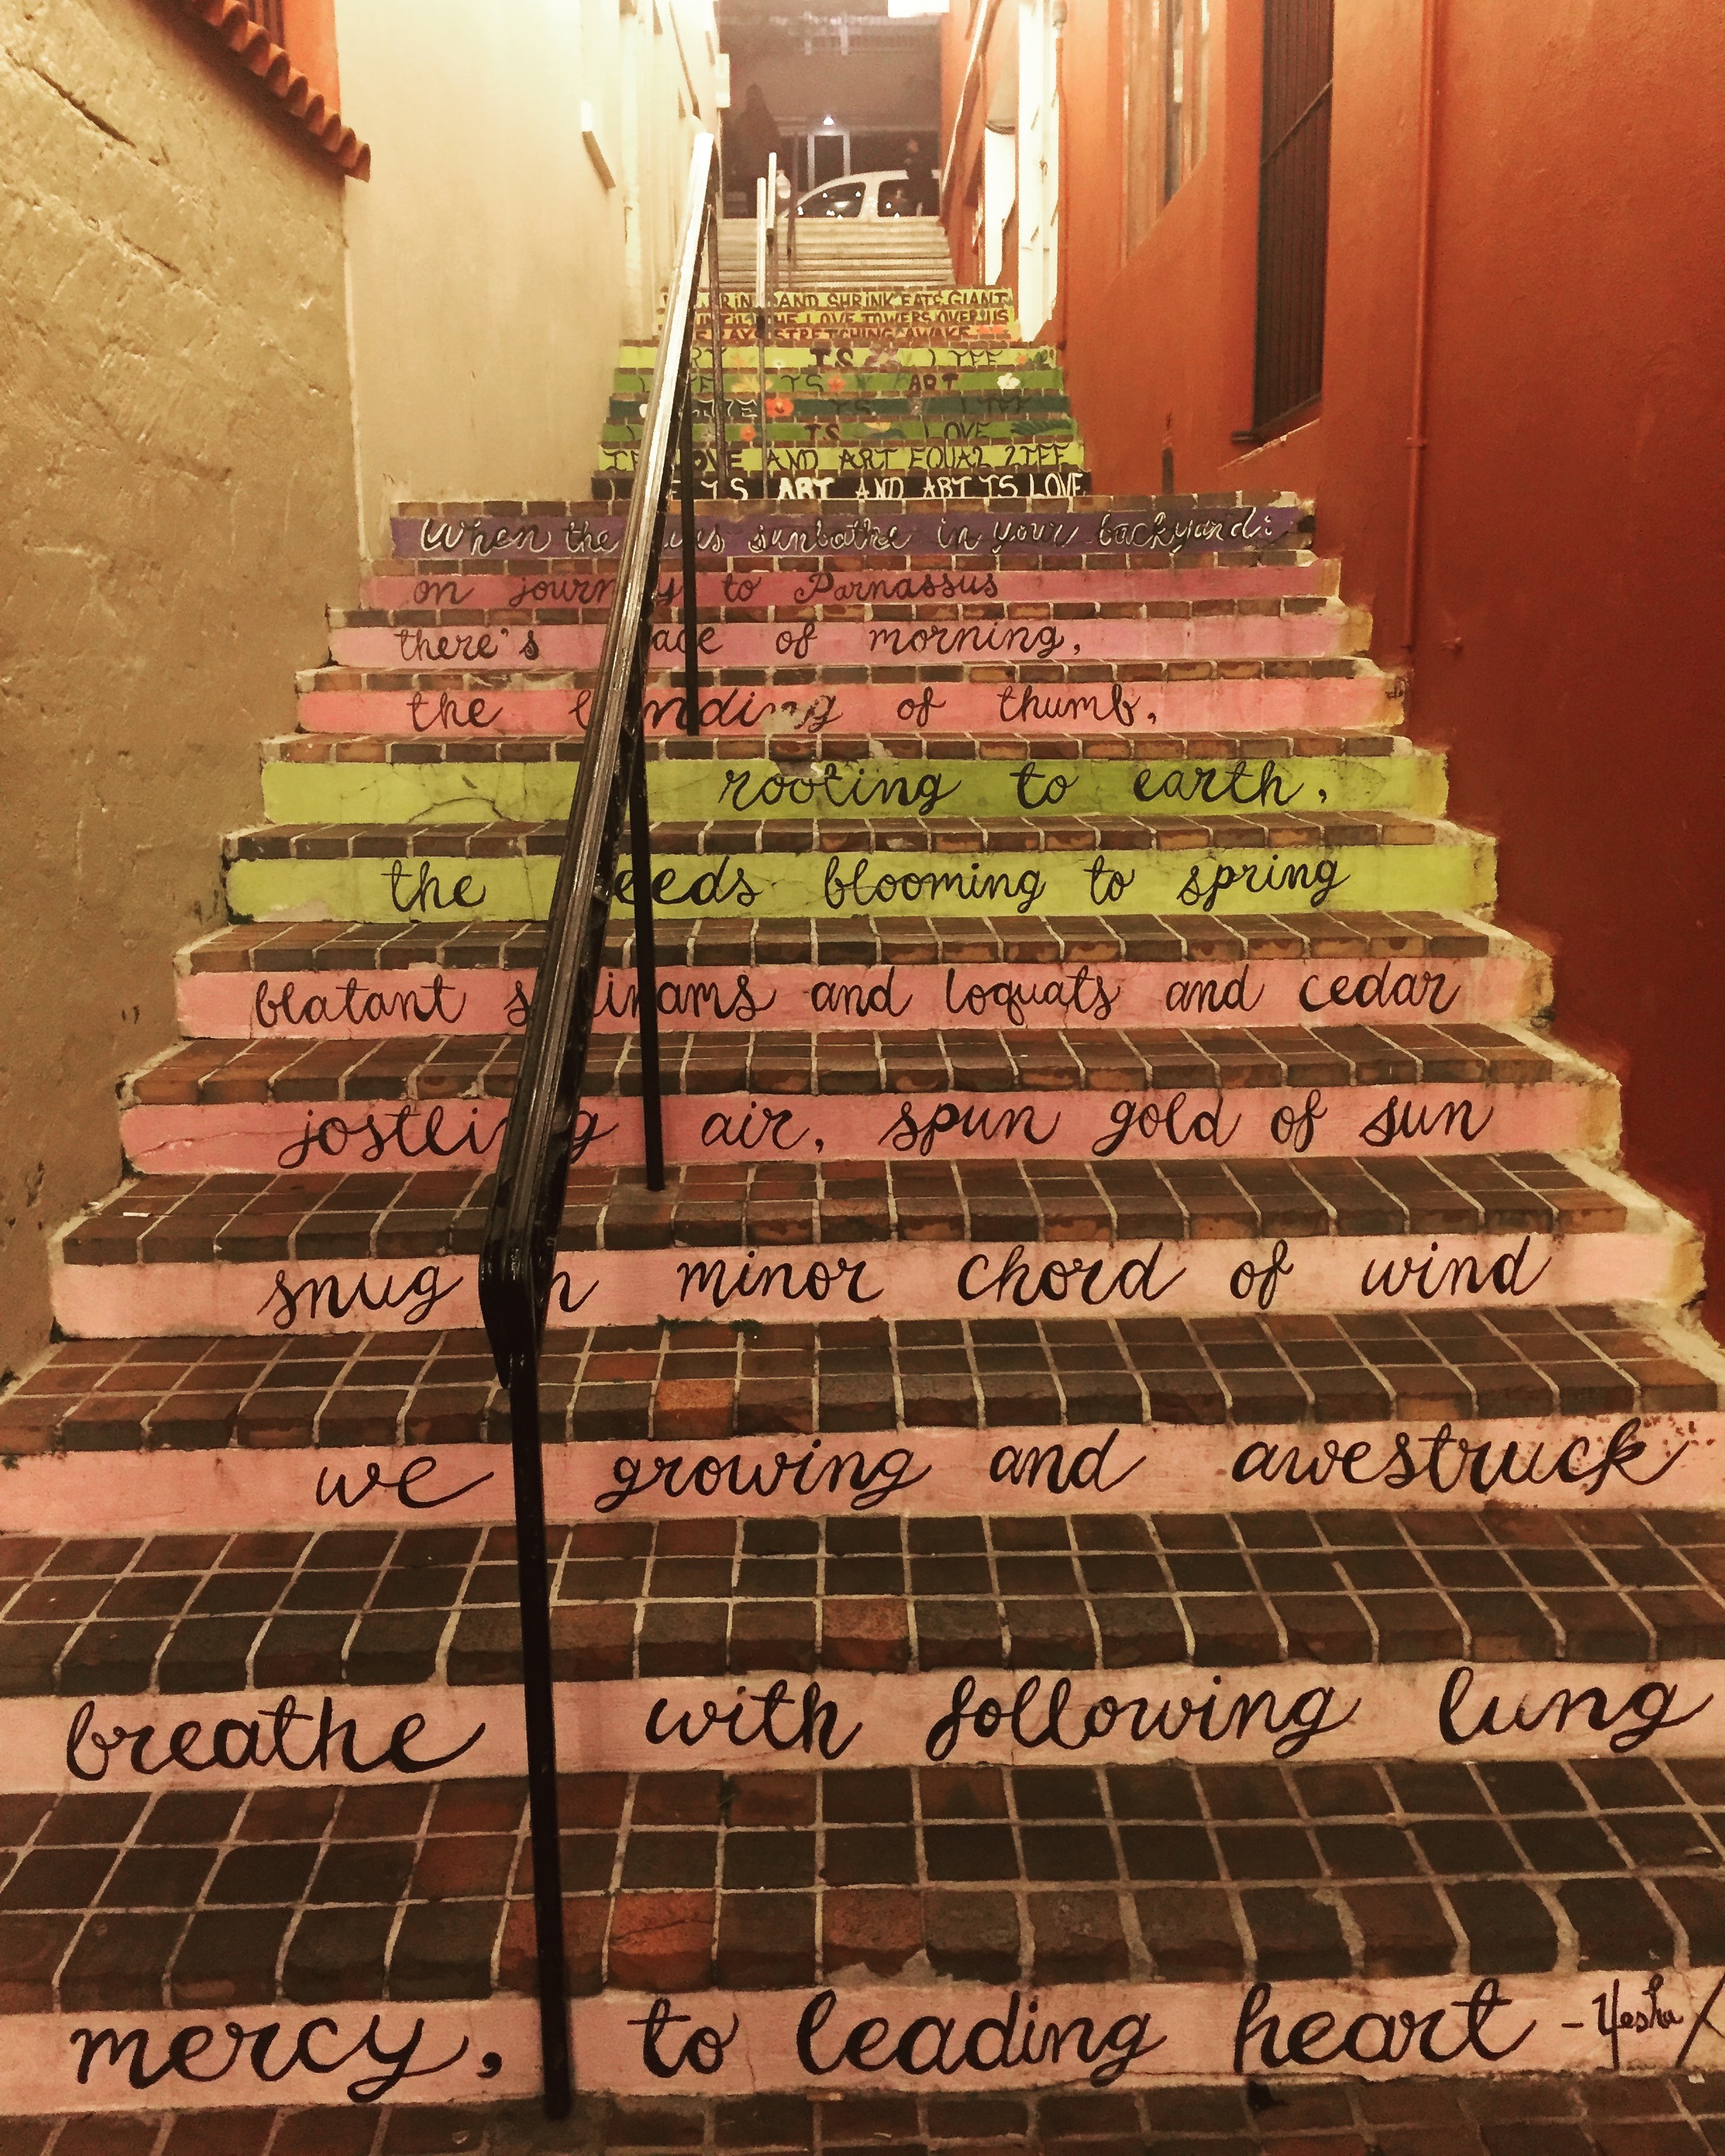 AND SHRINK EATS GIANT
LOVE TOWERS OVER US
STRETCHING AWAKE
IS LIFE
IS ART
IS LIFE
IS LOVE
AND ART EQUAL LIFE
IS ART AND ART IS LOVE
When the sunbathe in your backyard:
on journey to Parnassus
there's of morning,
the of thumb,
rooting to earth,
the blooming to spring
blatant and loquats and cedar
jostling air, spun gold of sun
snug minor chord of wind
we growing and awestruck
breathe with following lung
mercy, to leading heart -